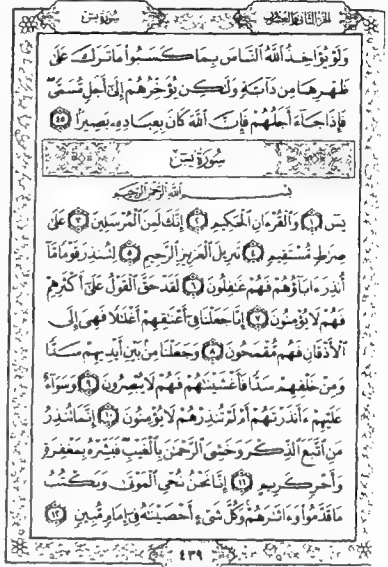 الجزء الثاني والعشرون
سورة يس
وَلَوْ يُؤَاخِذُ ٱللَّهُ ٱلنَّاسَ بِمَا كَسَبُوا۟ مَا تَرَكَ عَلَىٰ
ظَهْرِهَا مِن دَآبَّةٍ وَلَٰكِن يُؤَخِّرُهُمْ إِلَىٰٓ أَجَلٍ مُّسَمًّى
فَإِذَا جَآءَ أَجَلُهُمْ فَإِنَّ ٱللَّهَ كَانَ بِعِبَادِهِۦ بَصِيرًۢا ٤٥
سُورَةُ يسٓ
بِسْمِ ٱللَّهِ ٱلرَّحْمَٰنِ ٱلرَّحِيمِ
يسٓ ١ وَٱلْقُرْءَانِ ٱلْحَكِيمِ ٢ إِنَّكَ لَمِنَ ٱلْمُرْسَلِينَ ٣ عَلَىٰ
صِرَٰطٍ مُّسْتَقِيمٍ ٤ تَنزِيلَ ٱلْعَزِيزِ ٱلرَّحِيمِ ٥ لِتُنذِرَ قَوْمًا مَّآ
أُنذِرَ ءَابَآؤُهُمْ فَهُمْ غَٰفِلُونَ ٦ لَقَدْ حَقَّ ٱلْقَوْلُ عَلَىٰٓ أَكْثَرِهِمْ
فَهُمْ لَا يُؤْمِنُونَ ٧ إِنَّا جَعَلْنَا فِىٓ أَعْنَٰقِهِمْ أَغْلَٰلًا فَهِىَ إِلَى
ٱلْأَذْقَانِ فَهُم مُّقْمَحُونَ ٨ وَجَعَلْنَا مِنۢ بَيْنِ أَيْدِيهِمْ سَدًّا
وَمِنْ خَلْفِهِمْ سَدًّا فَأَغْشَيْنَٰهُمْ فَهُمْ لَا يُبْصِرُونَ ٩ وَسَوَآءٌ
عَلَيْهِمْ ءَأَنذَرْتَهُمْ أَمْ لَمْ تُنذِرْهُمْ لَا يُؤْمِنُونَ ١٠ إِنَّمَا تُنذِرُ
مَنِ ٱتَّبَعَ ٱلذِّكْرَ وَخَشِىَ ٱلرَّحْمَٰنَ بِٱلْغَيْبِ فَبَشِّرْهُ بِمَغْفِرَةٍ
وَأَجْرٍ كَرِيمٍ ١١ إِنَّا نَحْنُ نُحْىِ ٱلْمَوْتَىٰ وَنَكْتُبُ
مَا قَدَّمُوا۟ وَءَاثَٰرَهُمْ وَكُلَّ شَىْءٍ أَحْصَيْنَٰهُ فِىٓ إِمَامٍ مُّبِينٍ ١٢
٤٣٩